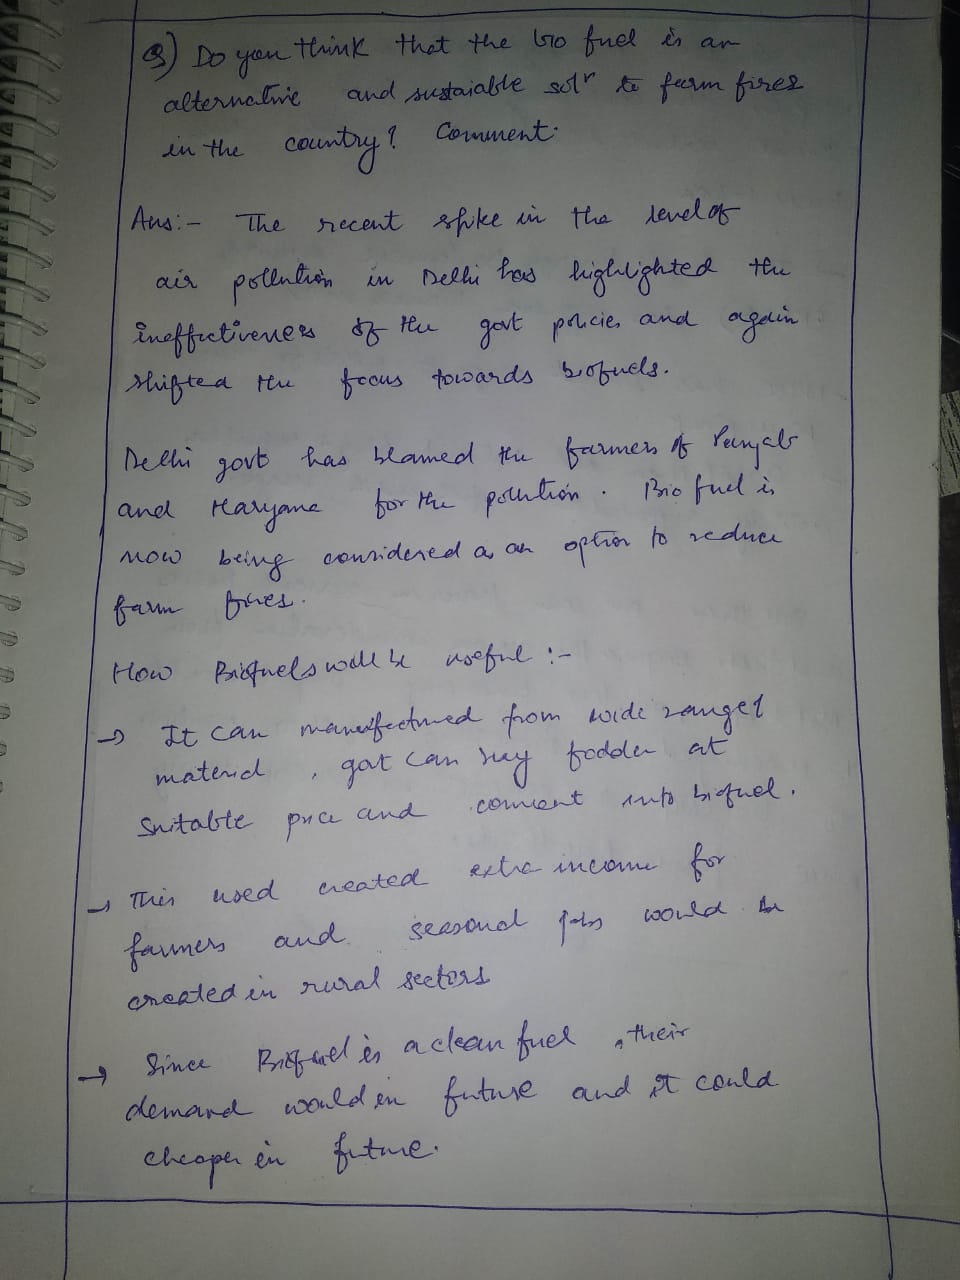 Q) Do you think that the bio fuel is an
alternative and sustaiable solⁿ to farm fires
in the country? Comment.
Ans:- The recent spike in the level of
air pollution in Delhi has highlighted the
ineffectiveness of the govt policies and again
shifted the focus towards biofuels.
Delhi govt has blamed the farmers of Punjab
and Haryana for the pollution. Bio fuel is
now being considered as an option to reduce
farm fires.
How Biofuels will be useful :-
→ It can manufactured from wide range of
material, govt can buy fodder at
suitable price and convert into biofuel.
→ This used created extra income for
farmers and seasonal jobs would be
created in rural sectors
→ Since Biofuel is a clean fuel, their
demand would in future and it could
cheaper in future.